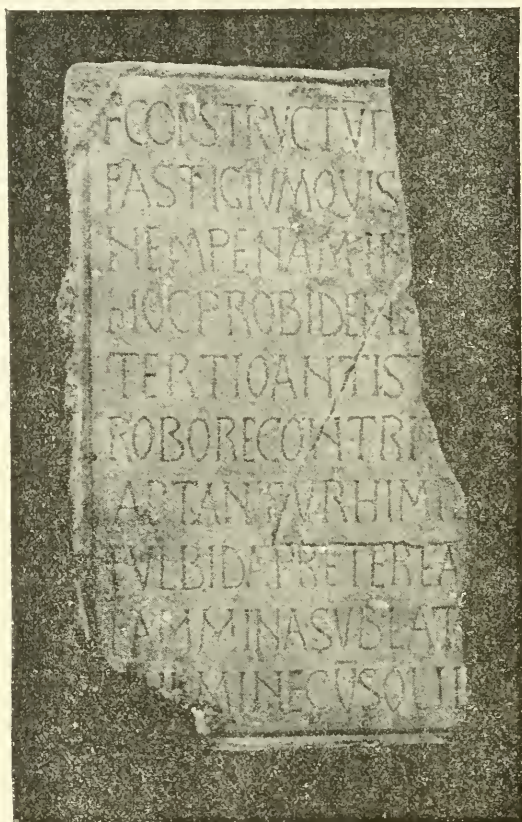 +CONSTRVCTV̅
FASTIGIVMQVIS
NEMPENAM IN
HOCPROBIDEM
TERTIOANTIS
ROBORECONTRI
APTANTVRHIM
FVLBIDAPRETEREA
LAMMINASVBLAT
MINECV̅SOLI